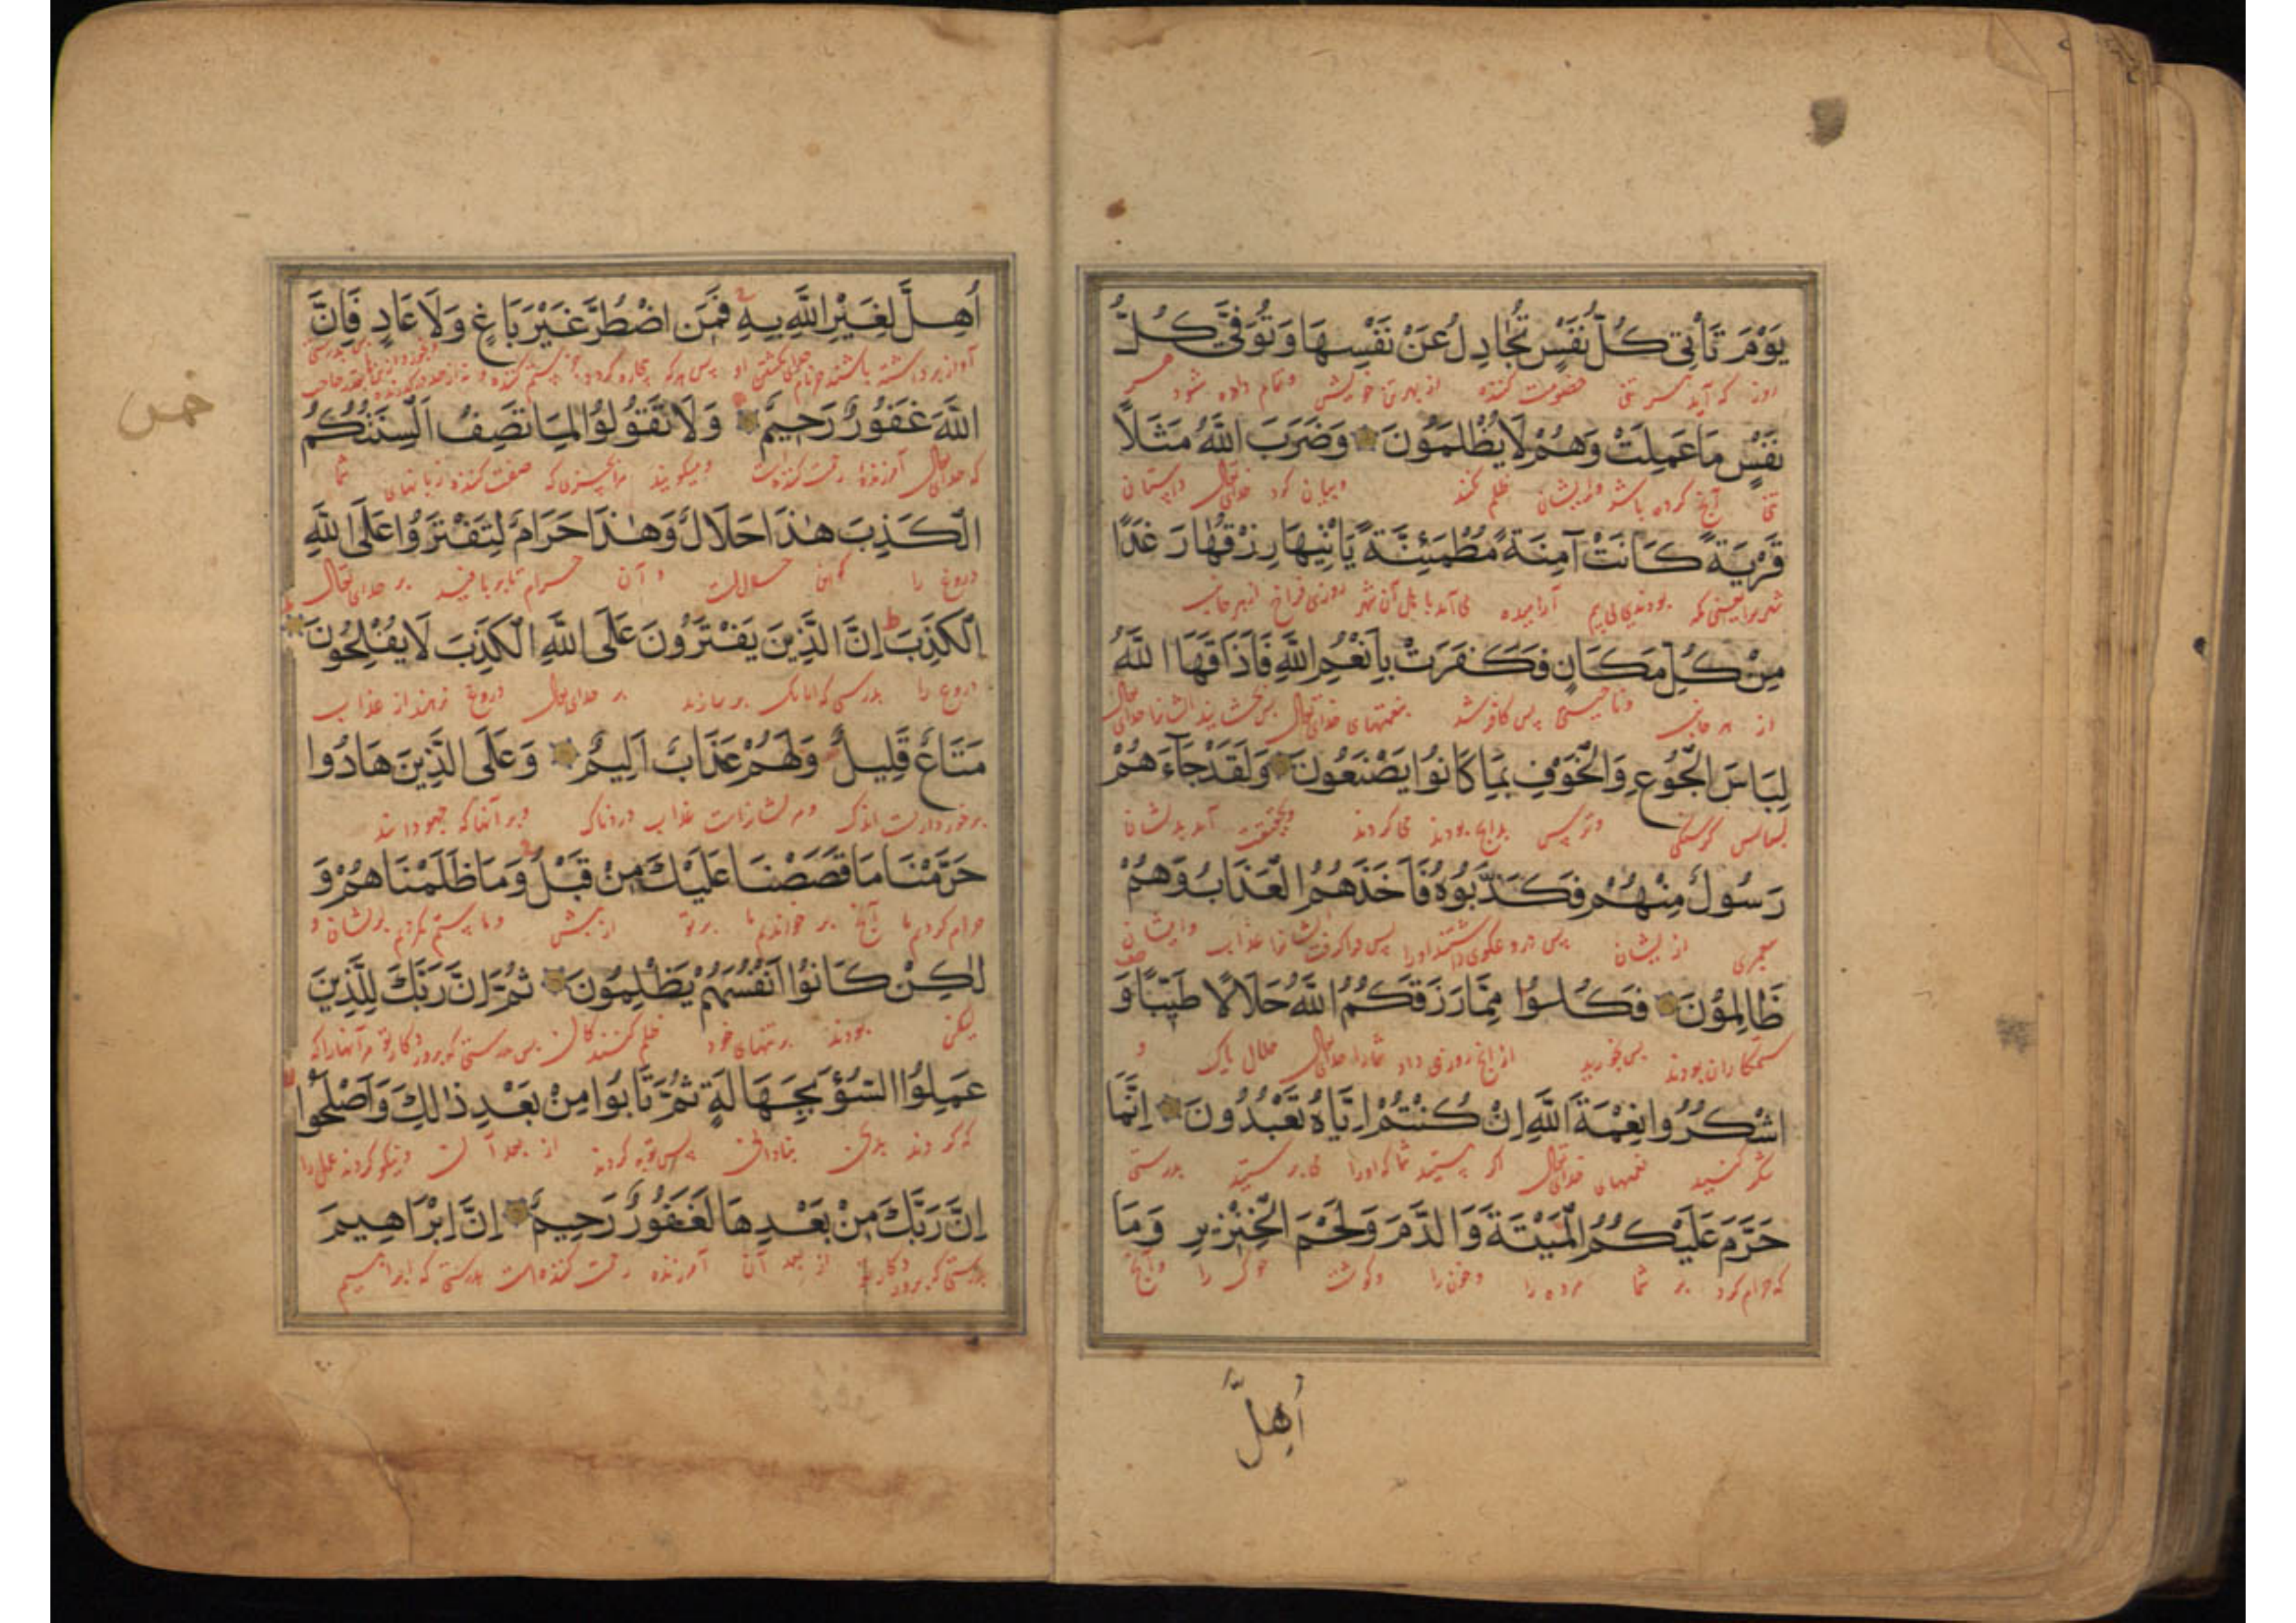 يَوْمَ تَأْتِي كُلُّ نَفْسٍ تُجَادِلُ عَنْ نَفْسِهَا وَتُوَفَّى كُلُّ
روز که آید هر تنی خصومت کننده از بهر تن خویش و تمام داده شود هر
نَفْسٍ مَا عَمِلَتْ وَهُمْ لَا يُظْلَمُونَ وَضَرَبَ اللَّهُ مَثَلًا
تنی آنچ کرده باشد و ایشان ظلم نکنند و بیان کرد خدای تعالی داستان
قَرْيَةً كَانَتْ آمِنَةً مُطْمَئِنَّةً يَأْتِيهَا رِزْقُهَا رَغَدًا
بودند آرامیده می آمد با اهل آن شهر روزی فراخ از هر جانب
مِنْ كُلِّ مَكَانٍ فَكَفَرَتْ بِأَنْعُمِ اللَّهِ فَأَذَاقَهَا اللَّهُ
از هر جانب پس کافر شد بنعمتهای خدای تعالی
لِبَاسَ الْجُوعِ وَالْخَوْفِ بِمَا كَانُوا يَصْنَعُونَ وَلَقَدْ جَاءَهُمْ
لباس گرسنگی و ترس بدانچ بودند می کردند و بحقیقت آمد بدیشان
رَسُولٌ مِنْهُمْ فَكَذَّبُوهُ فَأَخَذَهُمُ الْعَذَابُ وَهُمْ
از ایشان پس فرا گرفت ایشانرا عذاب و ایشان
ظَالِمُونَ فَكُلُوا مِمَّا رَزَقَكُمُ اللَّهُ حَلَالًا طَيِّبًا وَ
ستمکاران بودند پس بخورید از انچ روزی داد شما را خدای تعالی حلال پاک و
اشْكُرُوا نِعْمَةَ اللَّهِ إِنْ كُنْتُمْ إِيَّاهُ تَعْبُدُونَ إِنَّمَا
شکر کنید نعمتهای خدای تعالی اگر هستید شما که او را می پرستید بدرستی
حَرَّمَ عَلَيْكُمُ الْمَيْتَةَ وَالدَّمَ وَلَحْمَ الْخِنْزِيرِ وَمَا
که حرام کرد بر شما مرده را و خون را و گوشت خوک را و آنچ
أُهِلَّ
أُهِلَّ لِغَيْرِ اللَّهِ بِهِ فَمَنِ اضْطُرَّ غَيْرَ بَاغٍ وَلَا عَادٍ فَإِنَّ
آواز برداشته باشند
اللَّهَ غَفُورٌ رَحِيمٌ وَلَا تَقُولُوا لِمَا تَصِفُ أَلْسِنَتُكُمُ
که خدای تعالی آمرزنده رحمت کننده است و مگویید مر انچیزی که صفت کننده زبانهای شما
الْكَذِبَ هٰذَا حَلَالٌ وَهٰذَا حَرَامٌ لِتَفْتَرُوا عَلَى اللَّهِ
دروغ را که این حلالست و آن حرام تا بر بافید بر خدای تعالی
الْكَذِبَ إِنَّ الَّذِينَ يَفْتَرُونَ عَلَى اللَّهِ الْكَذِبَ لَا يُفْلِحُونَ
دروغ را بدرستی که آنانک بر سازند بر خدای تعالی دروغ نرهند از عذاب
مَتَاعٌ قَلِيلٌ وَلَهُمْ عَذَابٌ أَلِيمٌ وَعَلَى الَّذِينَ هَادُوا
برخورداریست اندک و مر ایشانراست عذاب دردناک و بر آنها که جهود شدند
حَرَّمْنَا مَا قَصَصْنَا عَلَيْكَ مِنْ قَبْلُ وَمَا ظَلَمْنَاهُمْ وَ
حرام کردیم ما آنچ بر خواندیم ما بر تو از پیش و ما ستم نکردیم بریشان و
لٰكِنْ كَانُوا أَنْفُسَهُمْ يَظْلِمُونَ ثُمَّ إِنَّ رَبَّكَ لِلَّذِينَ
لیکن بودند بر تنهای خود ظلم کنندگان پس بدرستی که پروردگار تو مر آنها را که
عَمِلُوا السُّوءَ بِجَهَالَةٍ ثُمَّ تَابُوا مِنْ بَعْدِ ذٰلِكَ وَأَصْلَحُوا
که کردند بدی بنادانی پس توبه کردند از بعد آن و نیکو کردند عمل را
إِنَّ رَبَّكَ مِنْ بَعْدِهَا لَغَفُورٌ رَحِيمٌ إِنَّ إِبْرَاهِيمَ
بدرستی که پروردگار تو از بعد آن آمرزنده رحمت کننده است بدرستی که ابراهیم
خمس